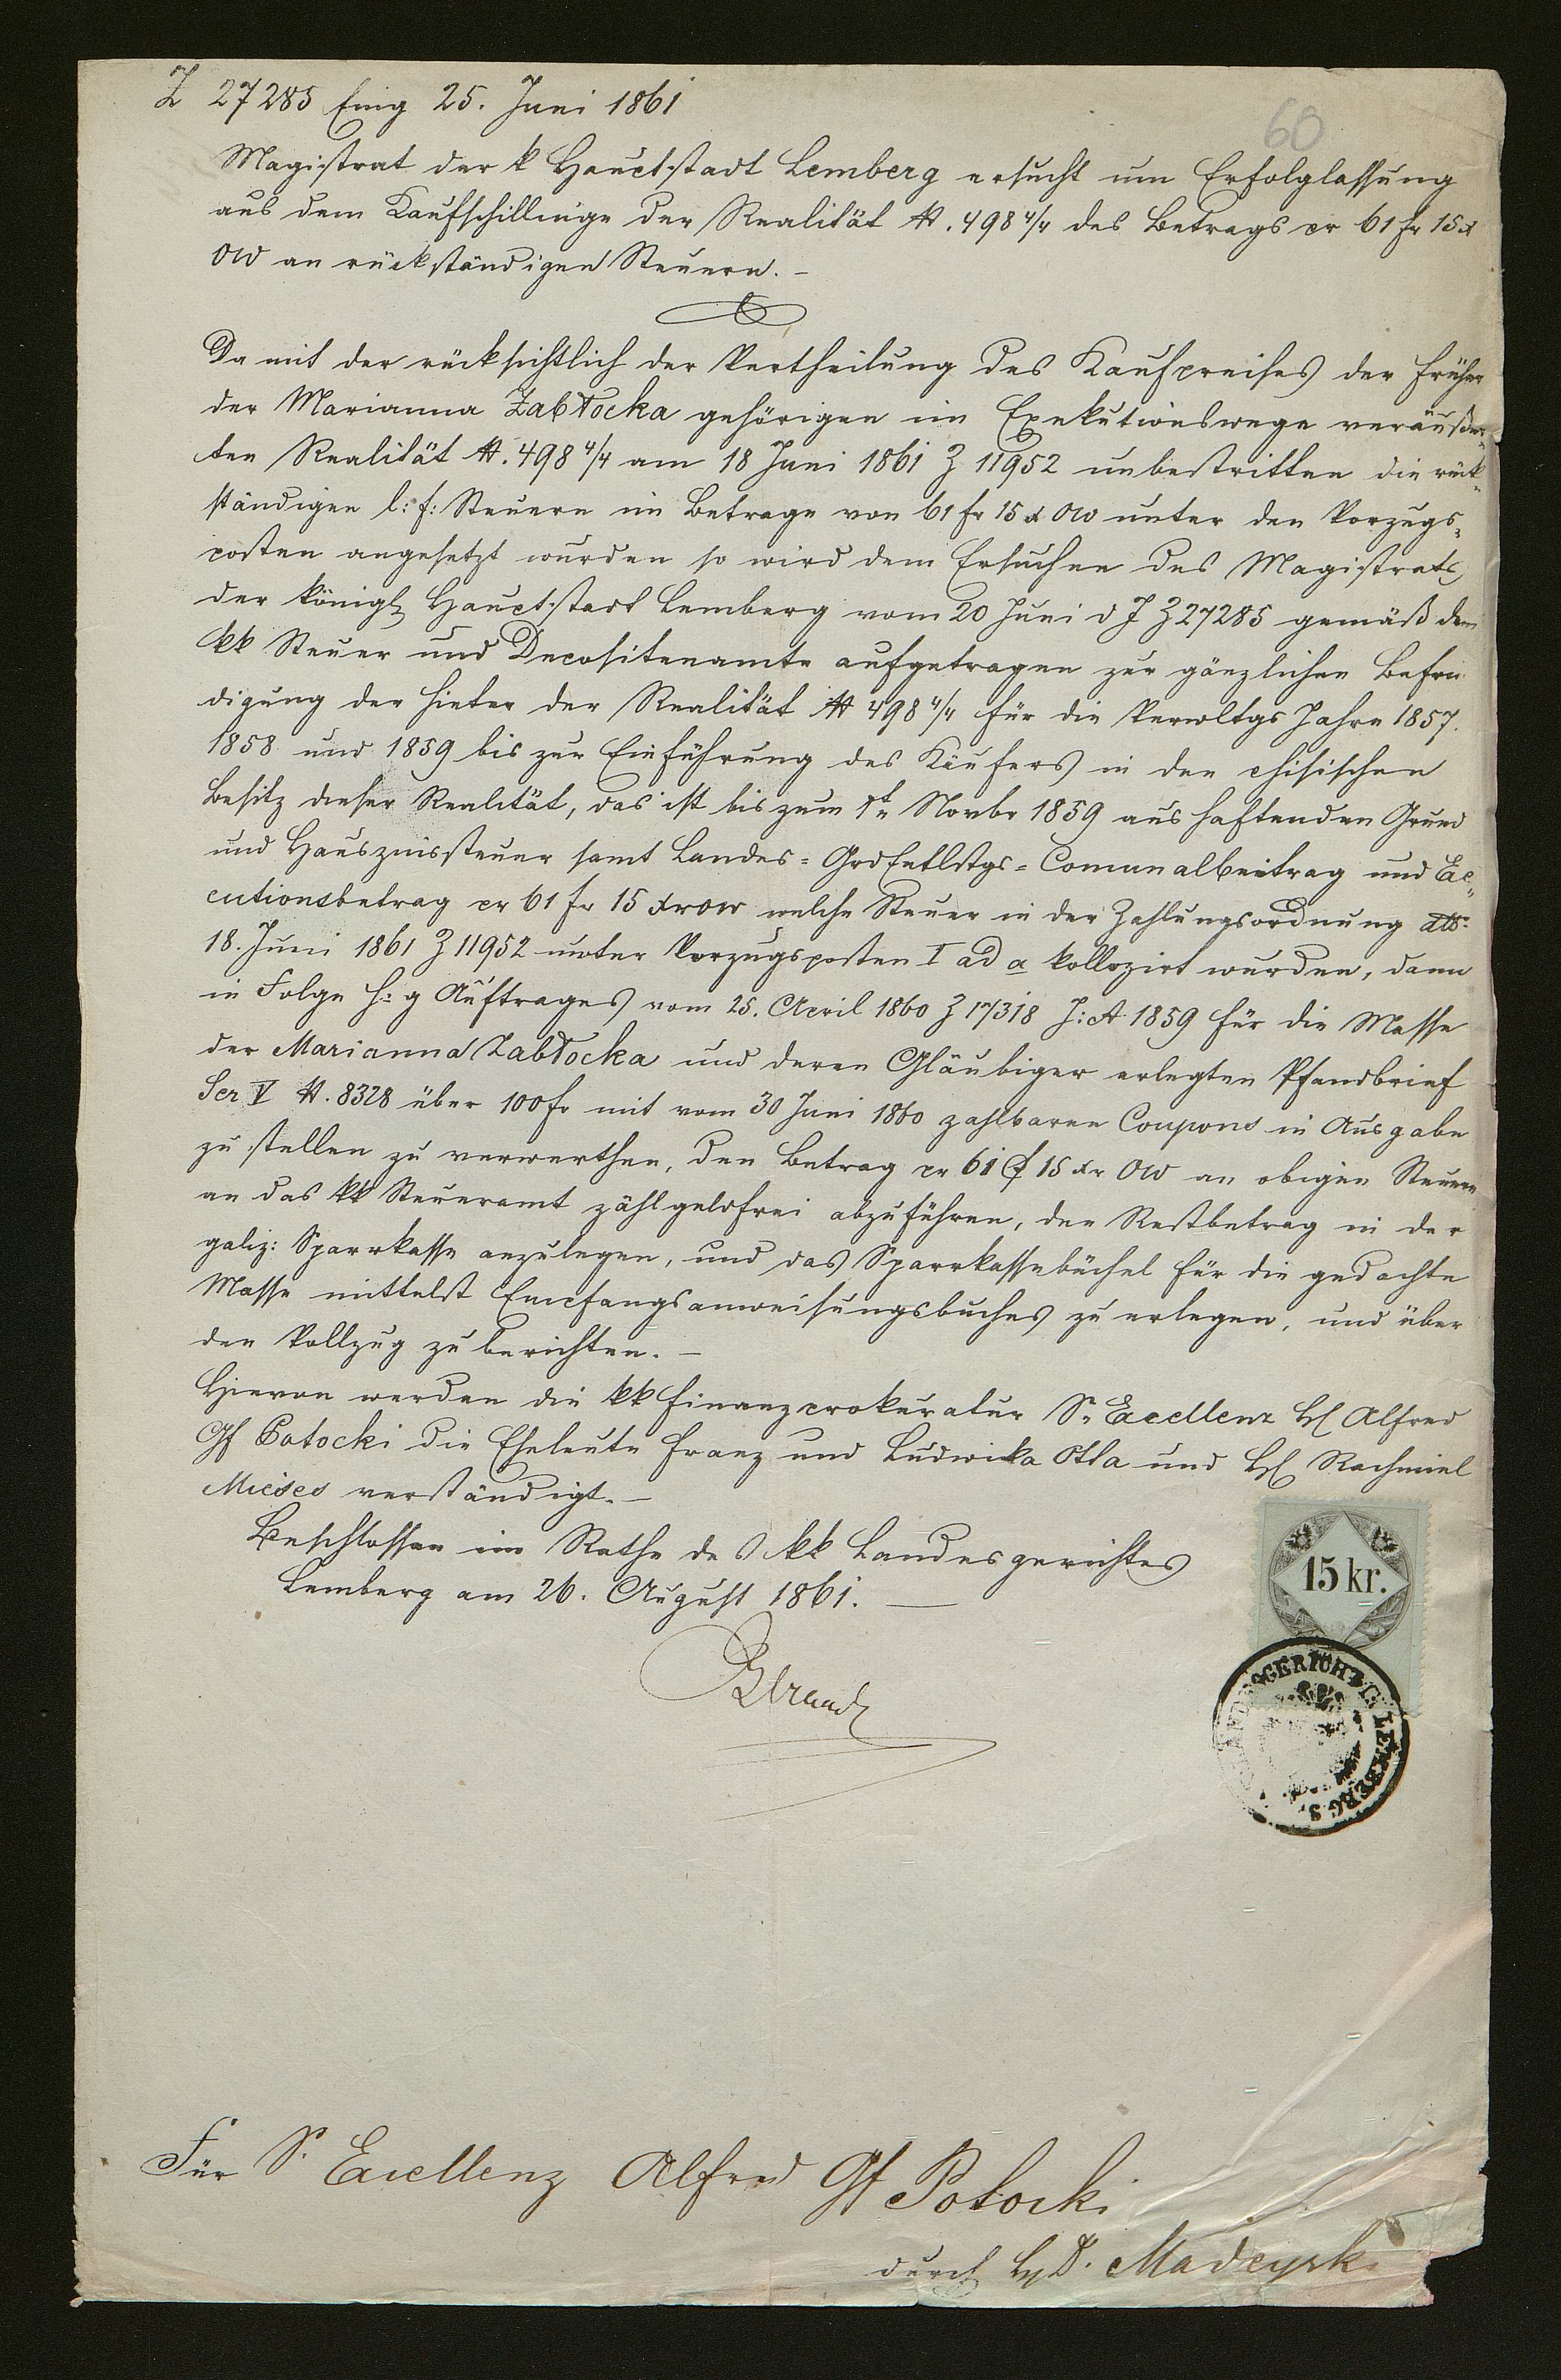 Z 27285 Eing 25. Juni 1861
60
Magistrat der k Hauptstadt Lemberg ersucht um Erfolglassung
aus dem Kaufschillinge der Realität N. 498 4/4 des Betrags pr 61 fr 15 x
OW an rückständigen Steuern. –
Da mit der rücksichtlich der Vertheilung des Kaufpreises der früher
der Marianna Zabłocka gehörigen im Exekutionswege veräußer-
ten Realität N. 498 4/4 am 18 Juni 1861 Z 11952 unbestritten die rück-
ständigen l: f: Steuern im Betrage von 61 fr 15 x OW unter den Vorzugs-
posten angesetzt wurden so wird dem Ersuchen des Magistrats
der königl Hauptstadt Lemberg vom 20 Juni d J Z 27285 gemäß dem
kk Steuer und Depositenamte aufgetragen zur gänzlichen Befrie
digung der hinter der Realität N 498 4/4 für die Verwltgs Jahre 1857.
1858 und 1859 bis zur Einführung des Käufers in den phisischen
Besitz dieser Realität, das ist bis zum 1t Novbr 1859 aushaftenden Grund
und Hauszinssteuer samt Landes- GrdEntlstgs- Comunalbeitrag und Ex-
cutionsbetrag pr 61 fr 15 xr OW welche Steuer in der Zahlungsordnung dto
18. Juni 1861 Z 11952 unter Vorzugsposten I ad a kollozirt wurden, dann
in Folge h: g Auftrages vom 25. April 1860 Z 17318 J: A 1859 für die Masse
der Marianna Zabłocka und deren Gläubiger erlegten Pfandbrief
Ser V N. 8328 über 100 fr mit vom 30 Juni 1860 zahlbaren Coupons in Ausgabe
zu stellen zu verwerthen, den Betrag pr 61 f 15 xr OW an obigen Steuern
an das kk Steueramt zählgeldfrei abzuführen, den Restbetrag in der
galiz: Sparrkasse anzulegen, und das Sparrkassebüchel für die gedachte
Masse mittelst Empfangsanweisungsbuches zu erlegen, und über
den Vollzug zu berichten. –
Hievon werden die kk Finanzprokuratur Sr Excellenz H Alfred
Gf Potocki die Eheleute Franz und Ludwika Otta und H Rachmiel
Mieses verständigt. –
Beschlossen im Rathe des kk Landesgerichtes
Lemberg am 26. August 1861. –
15 kr.
Für Sr Excellenz Alfred Gf Potocki
durch H D. Madeyski